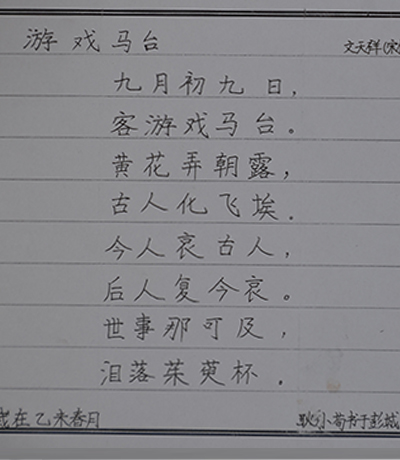 游戏马台
文天祥(宋)
九月初九日,
客游戏马台。
黄花弄朝露,
古人化飞埃.
今人哀古人,
后人复今哀。
世事那可及,
泪落茱萸杯.
岁在乙未春月
耿小苟书于彭城